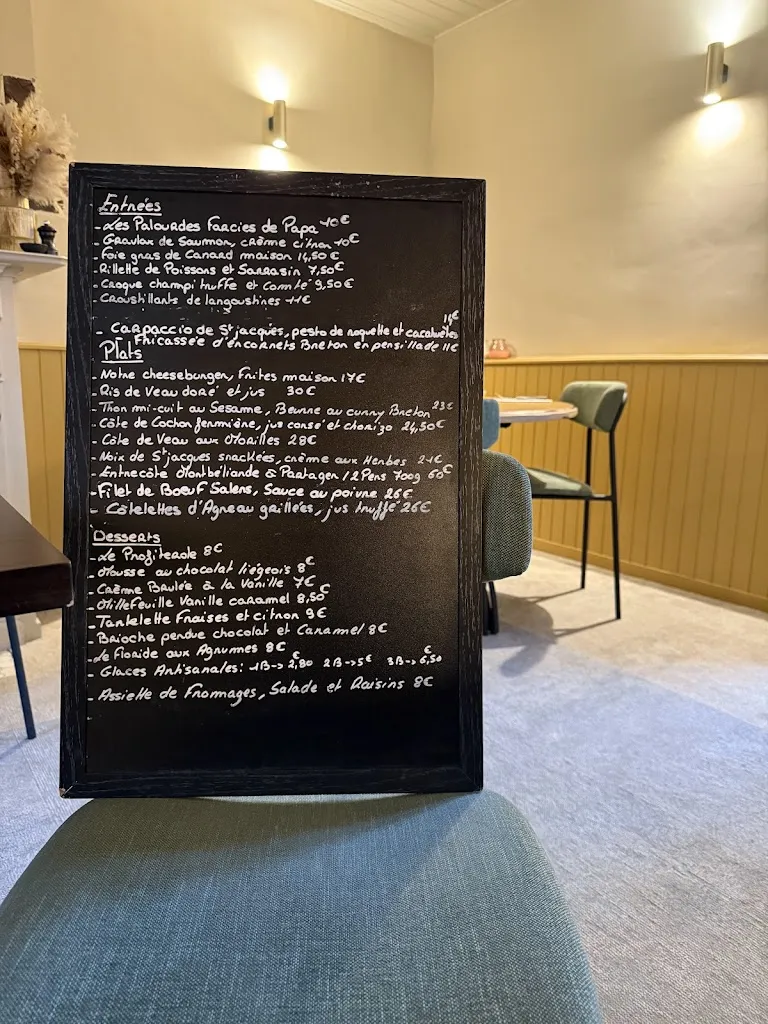 Entrées
- Les Palourdes Farcies de Papa 10€
- Gravlax de Saumon, crème citron 10€
- Foie gras de Canard maison 14,50€
- Rillette de Poissons et Sarrasin 7,50€
- Croque champi truffe et Comté 9,50€
- Croustillants de langoustines 11€
- Carpaccio de St jacques, pesto de roquette et cacahuètes 14€
- Fricassée d'encornets Breton en persillade 11€
Plats
- Notre cheeseburger, Frites maison 17€
- Ris de Veau doré et jus 30€
- Thon mi-cuit au Sesame, Beurre au curry Breton 23€
- Côte de Cochon fermière, jus corsé et chorizo 24,50€
- Côte de Veau aux Morilles 28€
- Noix de St jacques snackées, crème aux Herbes 24€
- Entrecôte Montbéliarde à Partager / 2 Pers 700g 60€
- Filet de Boeuf Salers, Sauce au poivre 26€
- Côtelettes d'Agneau grillées, jus truffé 26€
Desserts
- Le Profiterole 8€
- Mousse au chocolat liégeois 8€
- Crème Brulée à la Vanille 7€
- Millefeuille Vanille caramel 8,50€
- Tartelette Fraises et citron 9€
- Brioche perdue chocolat et Caramel 8€
- Le Floride aux Agrumes 8€
- Glaces Artisanales: 1B-> 2,80€ 2B->5€ 3B-> 6,50€
- Assiette de Fromages, Salade et Raisins 8€